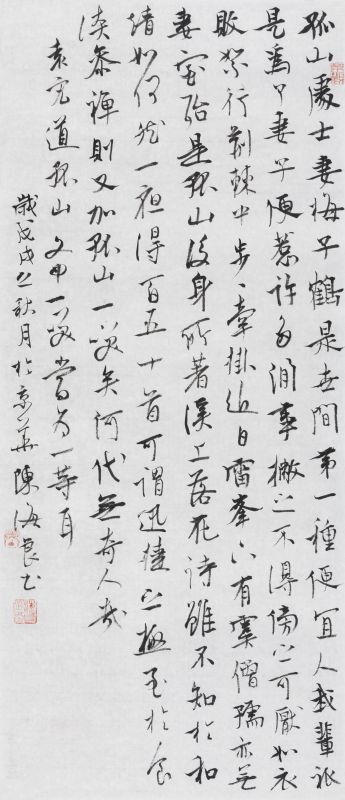 孤山處士妻梅子鶴是世間第一種便宜人我輩祇
是為了妻子便惹許多澗事撇之不得傍之可厭如衣
敗絮行荊棘中步々牽掛近日雷峯下有虞僧孺亦無
妻室殆是孤山後身所著溪上落花詩雖不知於和
靖如何然一夜得百五十首可謂迅捷之極至於食
淡參禪則又加孤山一段矣何代無奇人哉
袁宏道孤山 文中一段當為一等耳
歲戊戌之秋月於京華陳海良書